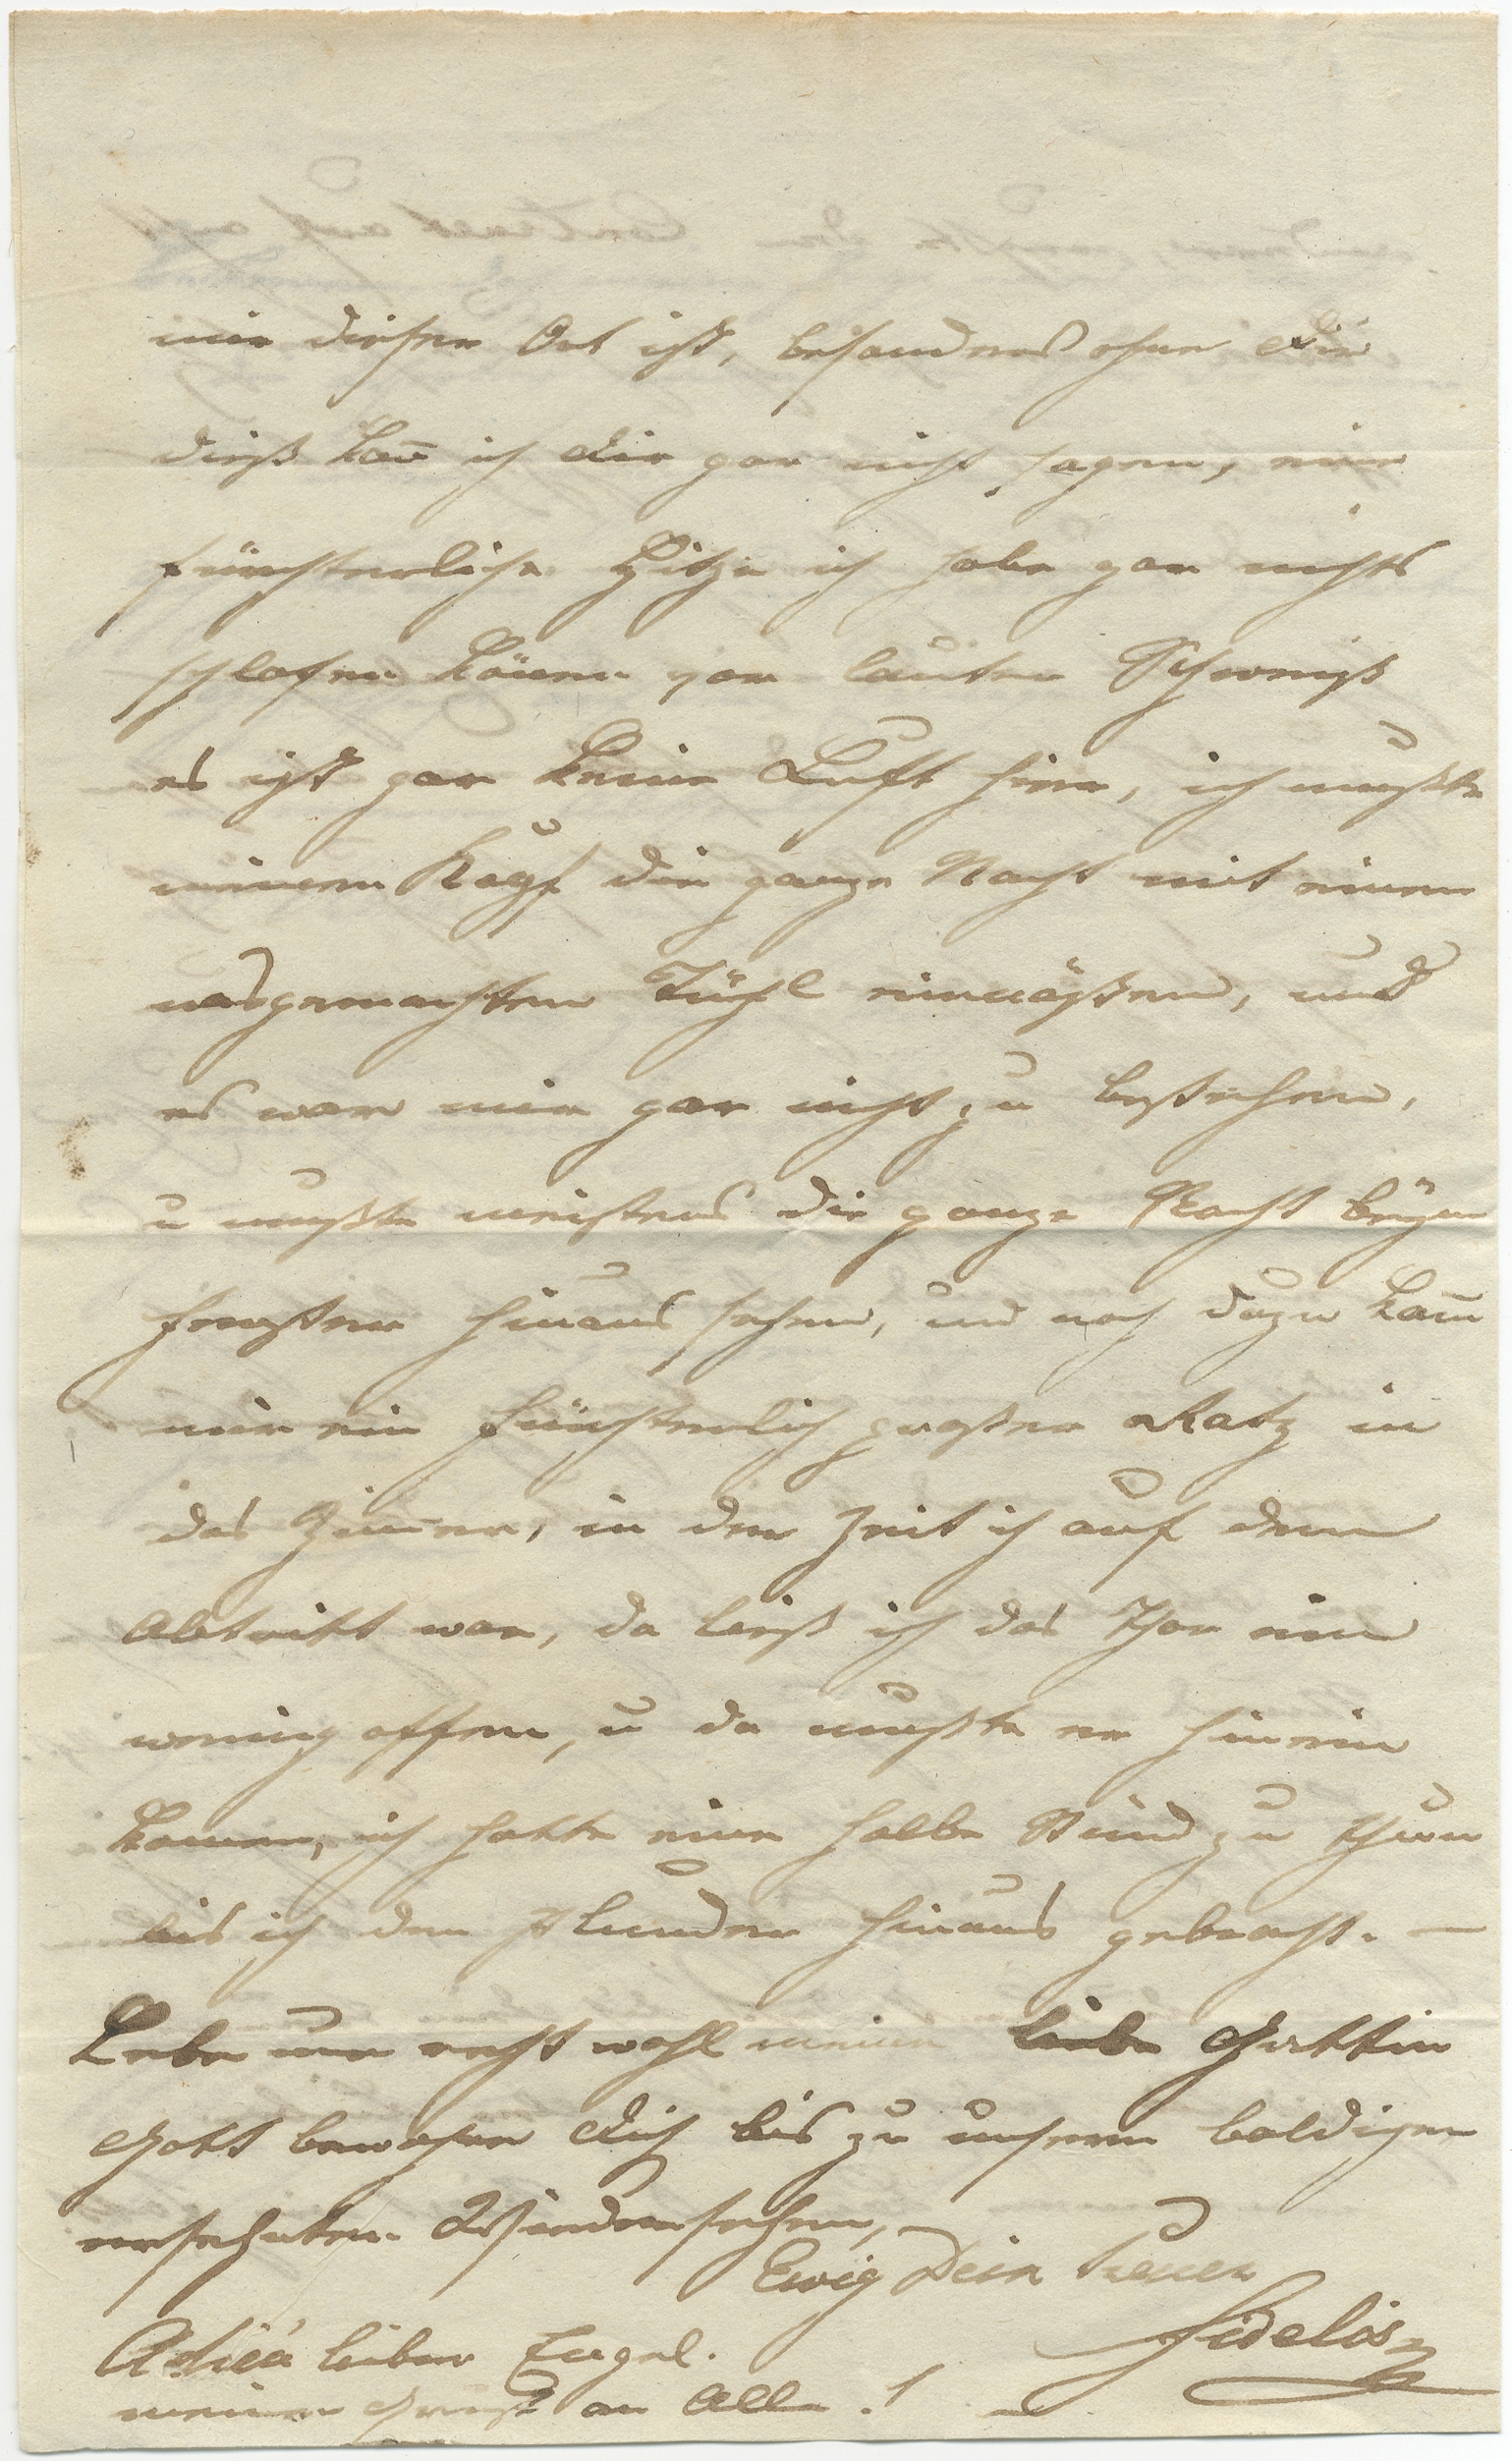 mir dieser Ort ist, besonders ohne Dir
dieß kan̄ ich Dir gar nicht sagen, eine
fürchterliche Hitze ich habe gar nichts
schlafen kön̄en vor lauter Schweiß
es ist gar keine Luft hier, ich mußte
meinen Kopf die ganze Nacht mit einem
nasgemachten Tüchl einnäßen, und
es war mir gar nicht zu bestehen,
u mußte meistens die ganze Nacht beym
Fenster hinaus sehen, und noch dazu kam̄
mir ein fürchterlich großer Ratz in
das Zim̄er, in der Zeit ich auf dem
Abtritt war, da ließ ich das Thor ein
wenig offen, u da mußte er hinein
komen, ich hatte eine halbe Stund zu thun
bis ich den Plunder hinaus gebracht. —
Lebe nur recht wohl meine liebe Gattin
Gott bewahre Dich bis zu unserm baldigen
ersehnten Wiedersehen,
Ewig Dein treuer
Fidelis
Adieu lieber Engel.
meinen Gruß an Alle !